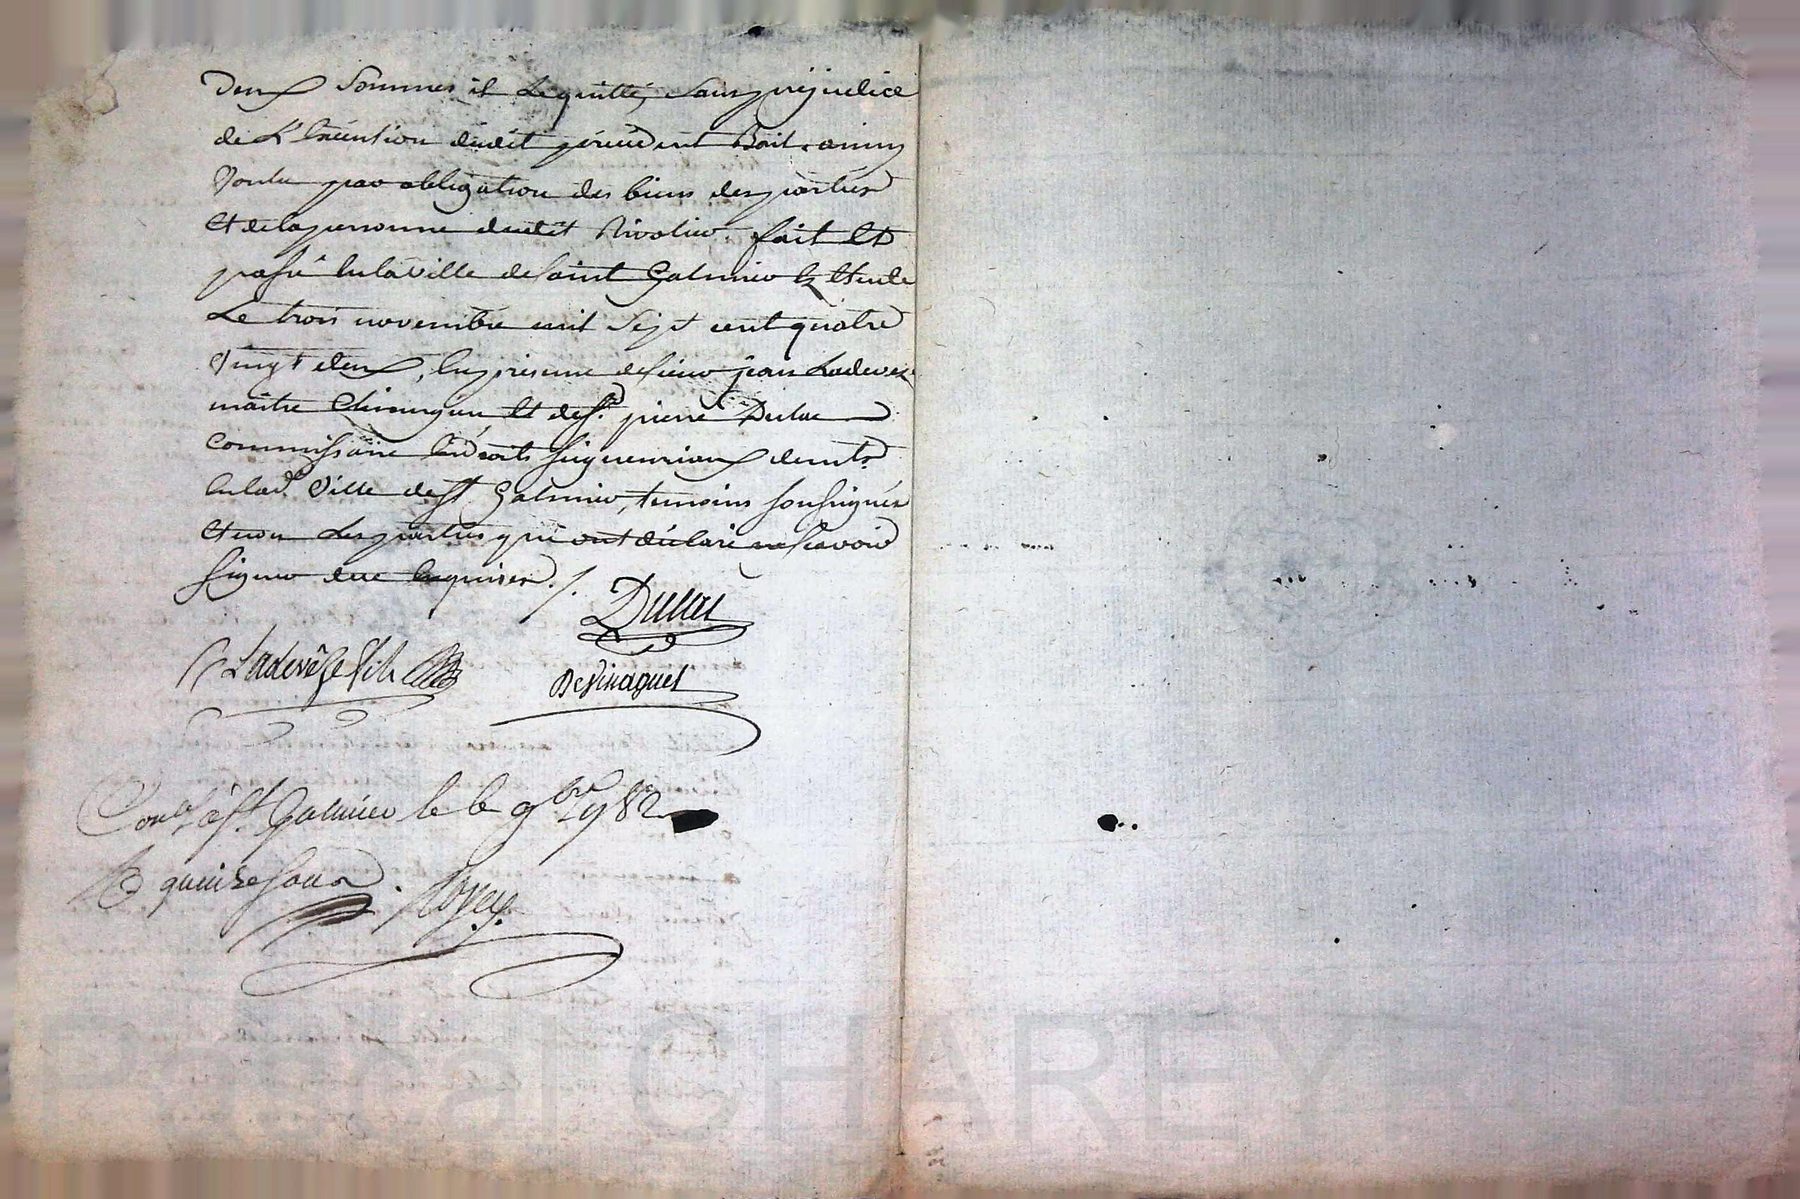 deux sommes il le quitte, sans préjudice
de L'execution dudit précèdent Bail. ainsy
Voulu par obligation des biens des parties
Et de la personne dudit Rivolier. fait Et
passé En la Ville de Saint Galmier Etude
Le trois novembre mil sept cent quatre
Vingt deux, En présence de sieur jean Ladeveze
maitre Chirurgien Et de sr. pierre Dulac
Commissaire En droits seigneuriaux demts.
En lad. Ville de st Galmier, temoins soussignés
Et non Les parties qui ont déclaré ne scavoir
signer de ce Enquises. /.
Dulac
Ladevèze fils
Devinaguet
Conlé à st. Galmier le 6 9bre 1782
R quinze sous. Royey.
Pascal CHAREYRON